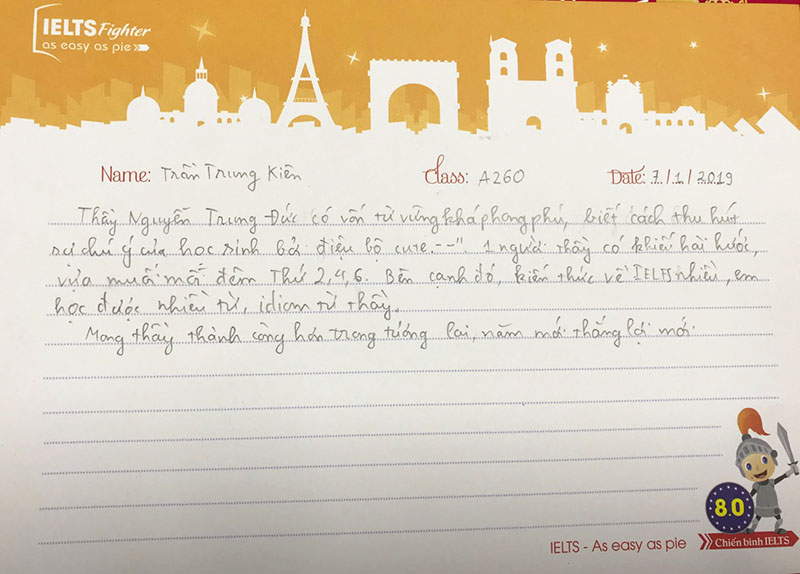 IELTS Fighter
as easy as pie
Name: Trần Trung Kiên Class: A260 Date: 7/1/2019
Thầy Nguyễn Trung Đức có vốn từ vựng khá phong phú, biết cách thu hút
sự chú ý của học sinh bở điệu bộ cute.--". 1 người thầy có khiếu hài hước,
vừa muối mặ đêm Thứ 2,4,6. Bên cạnh đó, kiến thức về IELTS nhiều, em
học được nhiều từ, idiom từ thầy.
Mong thầy thành công hơn trong tương lai, năm mới thắng lợi mới.
8.0
IELTS - As easy as pie
Chiến binh IELTS